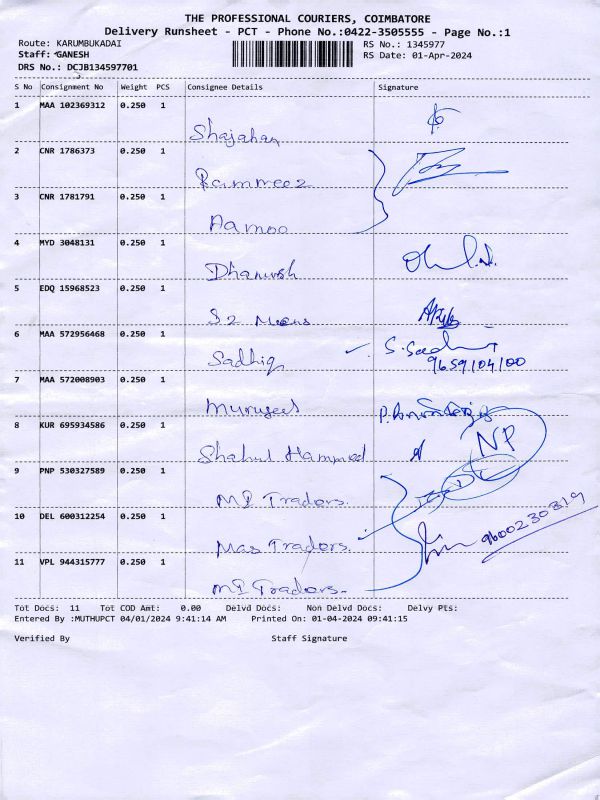 THE PROFESSIONAL COURIERS, COIMBATORE
Delivery Runsheet - PCT - Phone No.:0422-3505555 - Page No.:1
Route: KARUMBUKADAI RS No.: 1345977
Staff: GANESH RS Date: 01-Apr-2024
DRS No.: DCJB134597701
S No Consignment No Weight PCS Consignee Details Signature
1 MAA 102369312 0.250 1
Shajahan
2 CNR 1786373 0.250 1
Rammeez
3 CNR 1781791 0.250 1
Aamoo
4 MYD 3048131 0.250 1
Dhanush
5 EDQ 15968523 0.250 1
S2 Mens
6 MAA 572956468 0.250 1
Sadhiq S.Sad
9659104100
7 MAA 572008903 0.250 1
8 KUR 695934586 0.250 1
Shahul Hammed NP
9 PNP 530327589 0.250 1
MI Traders.
10 DEL 600312254 0.250 1
Mas Traders. 9600230819
11 VPL 944315777 0.250 1
MI Traders.
Tot Docs: 11 Tot COD Amt: 0.00 Delvd Docs: Non Delvd Docs: Delvy Pts:
Entered By :MUTHUPCT 04/01/2024 9:41:14 AM Printed On: 01-04-2024 09:41:15
Verified By Staff Signature